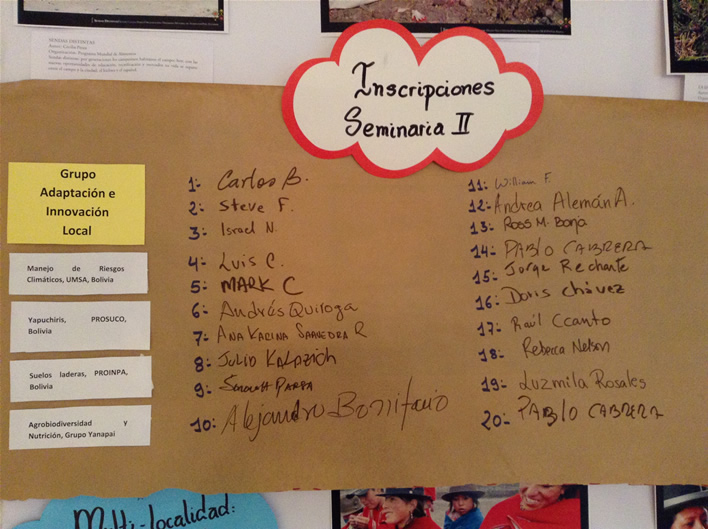 Inscripciones
Seminaria II
Grupo
Adaptación e
Innovación
Local
Manejo de Riesgos
Climáticos, UMSA, Bolivia
Yapuchiris, PROSUCO,
Bolivia
Suelos laderas, PROINPA,
Bolivia
Agrobiodiversidad y
Nutrición, Grupo Yanapai
1: Carlos B.
2: Steve F.
3: Israel N.
4: Luis C.
5: MARK C
6: Andrés Quiroga
7: ANA KARINA SAAVEDRA R
8: JULIO KALAZICH
9:
10: Alejandro Bonifacio
11: William F.
12: Andrea Alemán A.
13: Ross M. Borja
14: PABLO CABRERA
15: Jorge Rechante
16: Doris Chávez
17: Raúl Ccanto
18: Rebecca Nelson
19: Luzmila Rosales
20: PABLO CABRERA
Multi-localidad: